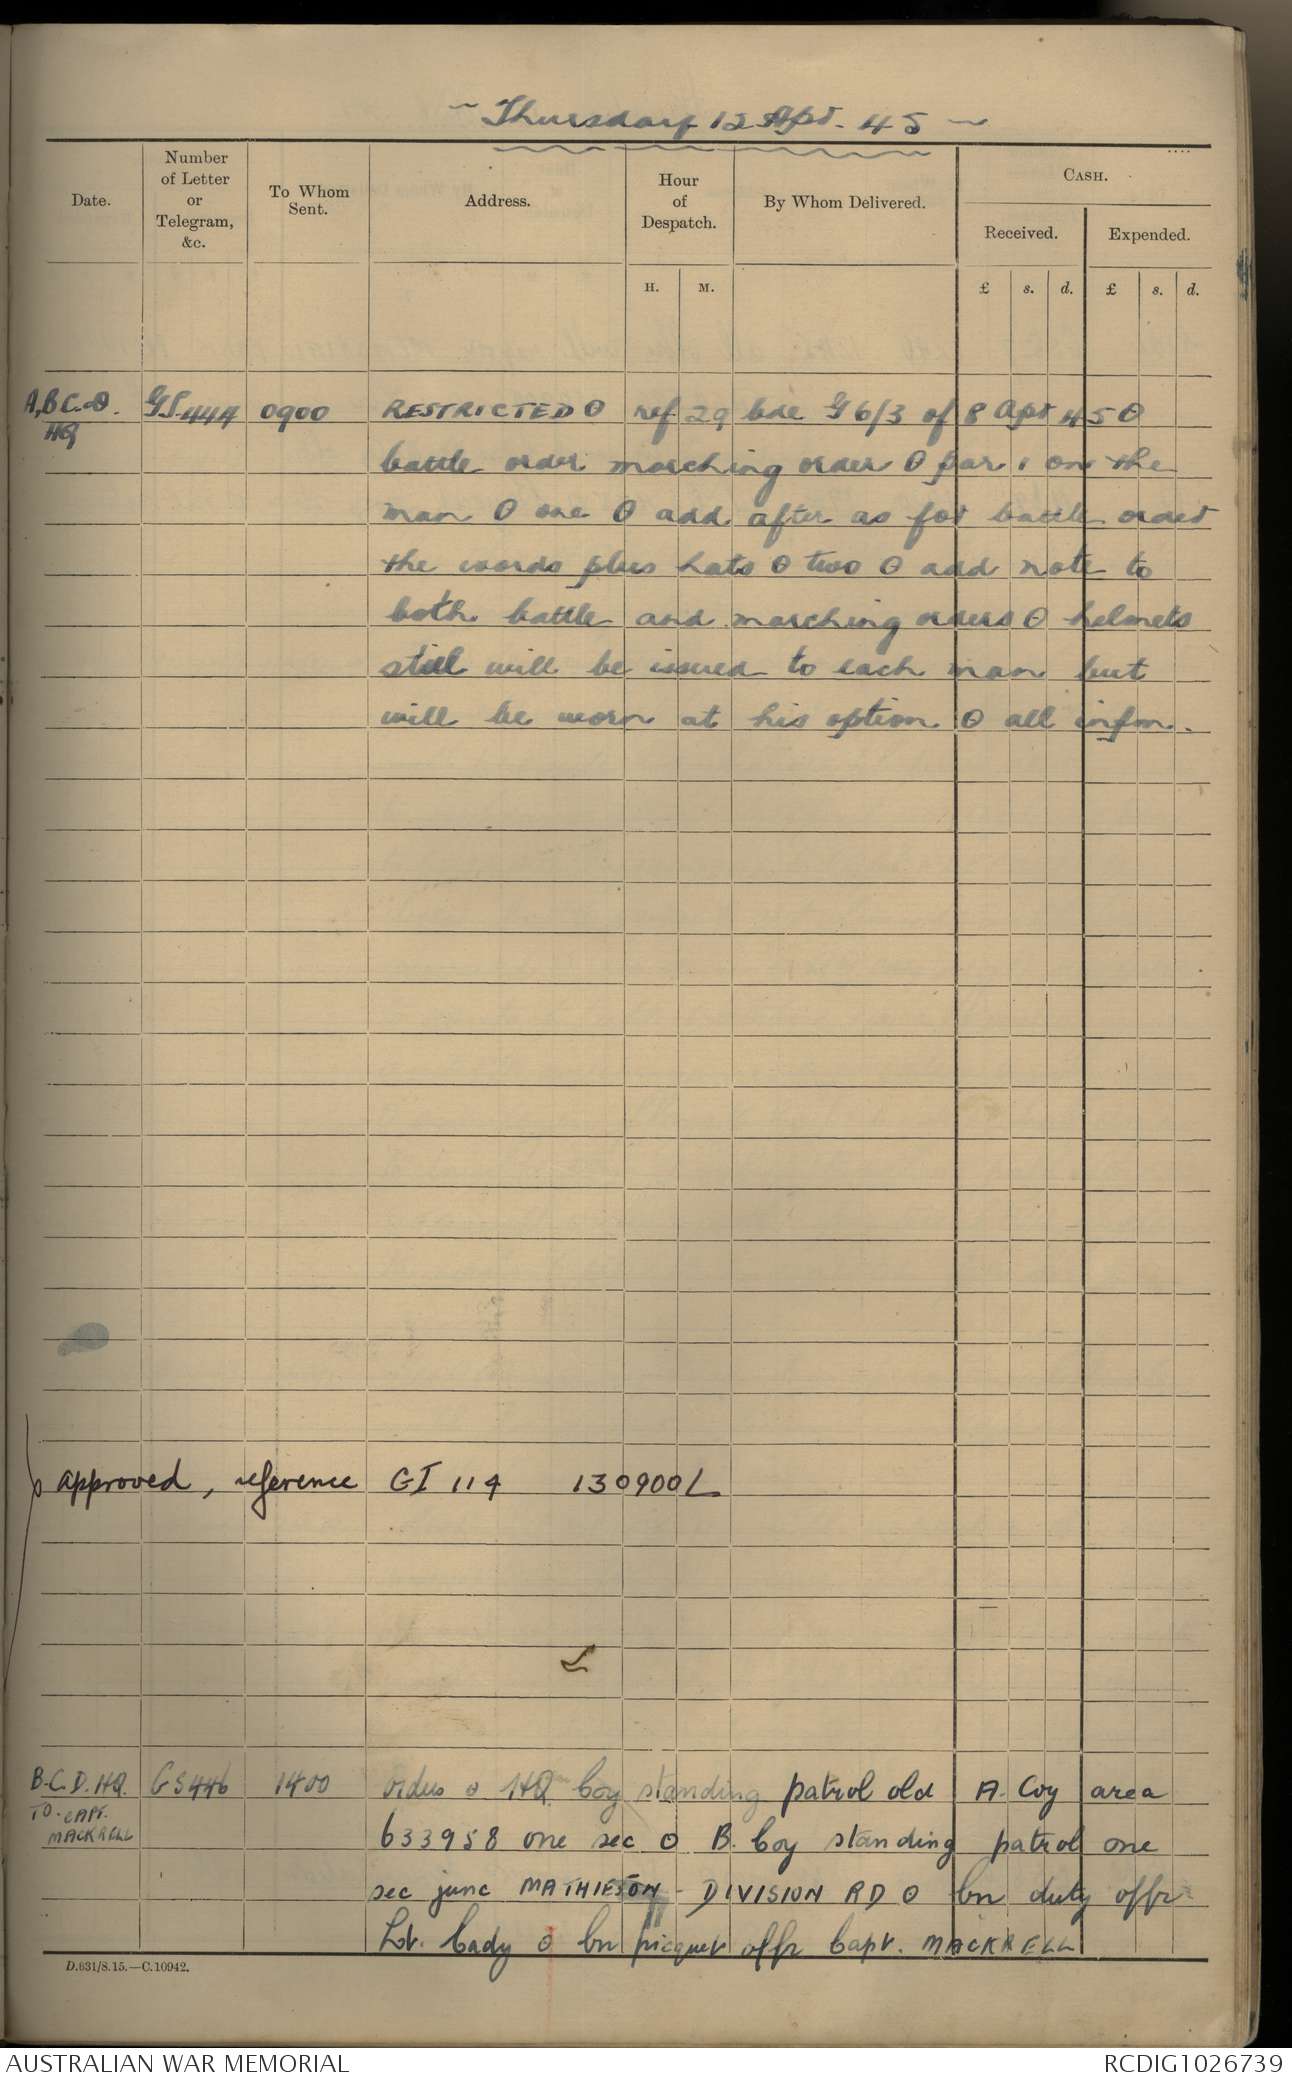 ~ Thursday 12 Apr. 45 ~
Date.
Number of Letter or Telegram, &c.
To Whom Sent.
Address.
Hour of Despatch.
By Whom Delivered.
CASH.
Received.
Expended.
H. M. £ s. d. £ s. d.
A, B C. D. GS444 0900 RESTRICTED O ref 29 bde G 6/3 of 8 Apr 45 O
HQ
battle order marching order O par 1 on the
man O one O add after as for battle order
the words plus hats O two O add note to
both battle and marching orders O helmets
steel will be issued to each man but
will be worn at his option O all infm.
approved, reference GI 114 130900L
B.C.D. HQ. GS446 1400 orders O HQ Coy standing patrol old A. Coy area
TO. CAPT. MACKRELL
633958 one sec O B. Coy standing patrol one
sec junc MATHIESON - DIVISION RD O bn duty offr
Lt. Cady O bn picquet offr Capt. MACKRELL
D.631/8.15.—C.10942.
AUSTRALIAN WAR MEMORIAL
RCDIG1026739